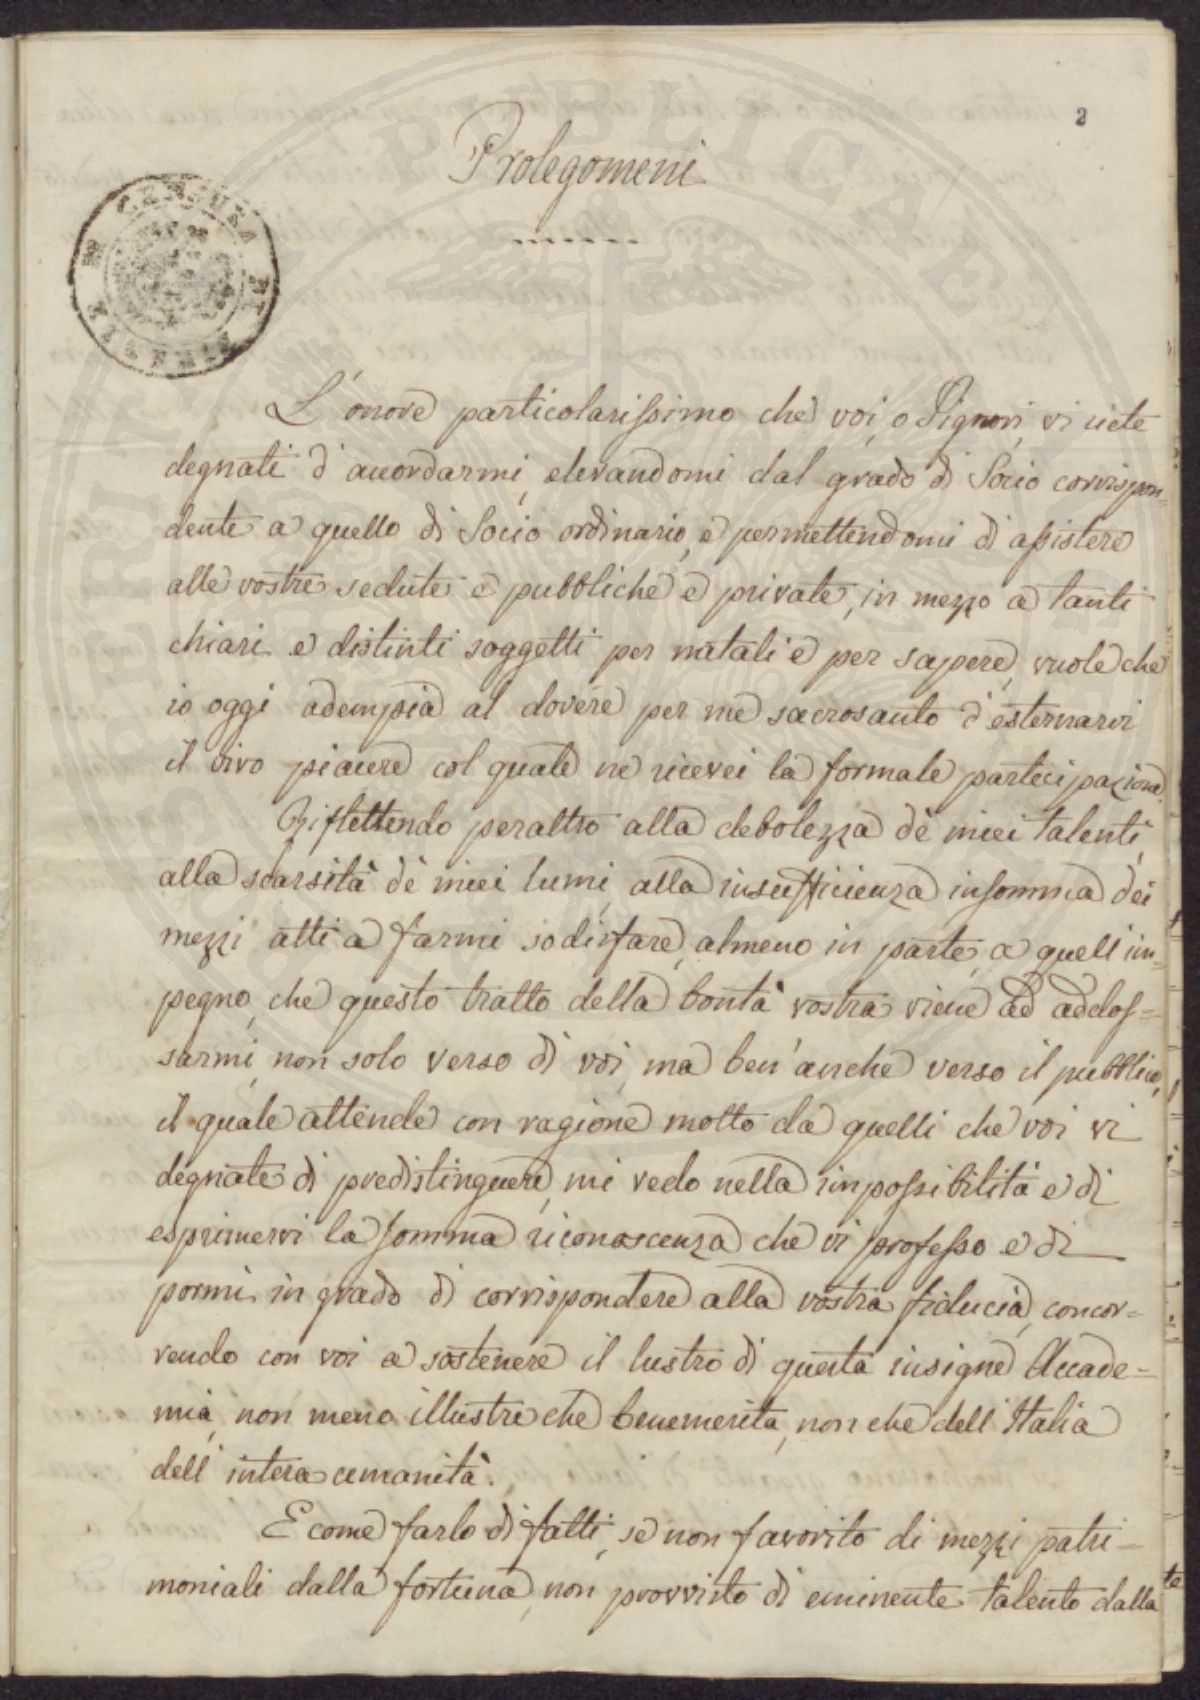 2
Prolegomeni
L'onore particolarissimo che voi, o Signori, vi siete
degnati d'accordarmi, elevandomi dal grado di Socio corrispon-
dente a quello di Socio ordinario, e permettendomi di assistere
alle vostre sedute e pubbliche e private, in mezzo a tanti
chiari e distinti soggetti per natali e per sapere, vuole che
io oggi adempia al dovere per me sacrosanto d'esternarvi
il vivo piacere col quale ne ricevei la formale partecipazione.
Riflettendo peraltro alla debolezza de' miei talenti,
alla scarsità de' miei lumi, alla insufficienza insomma dei
mezzi atti a farmi sodisfare, almeno in parte, a quell'im-
pegno, che questo tratto della bontà vostra viene ad addos=
sarmi, non solo verso di voi, ma ben'anche verso il pubblico,
il quale attende con ragione molto da quelli che voi vi
degnate di predistinguere, mi vedo nella impossibilità e di
esprimervi la somma riconoscenza che vi professo e di
pormi in grado di corrispondere alla vostra fiducia, concor=
rendo con voi a sostenere il lustro di questa insigne Accade=
mia, non meno illustre che benemerita, non che dell'Italia
dell'intera umanità.
E come farlo di fatti, se non favorito di mezzi patri-
moniali dalla fortuna, non provvisto di eminente talento dalla